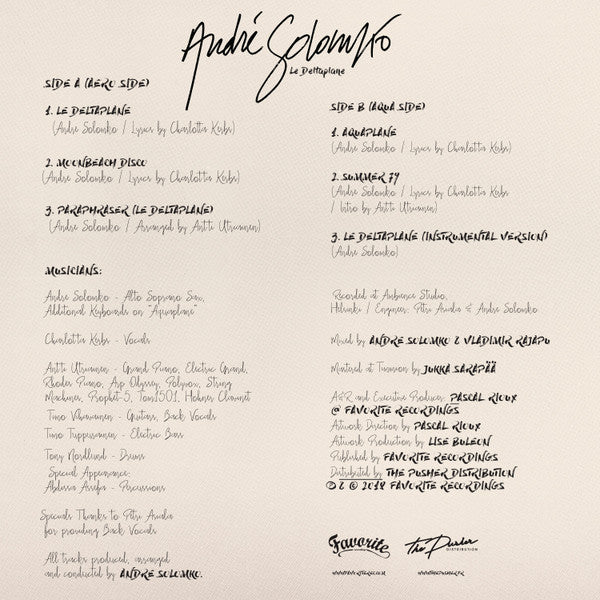 André Solomko
Le Deltaplane
SIDE A (AERO SIDE)
1. LE DELTAPLANE
(Andre Solomko / Lyrics by Charlotta Kerbs)
2. MOONBEACH DISCO
(Andre Solomko / Lyrics by Charlotta Kerbs)
3. PARAPHRASER (LE DELTAPLANE)
(Andre Solomko / Arranged by Antti Utriainen)
MUSICIANS:
Andre Solomko - Alto Soprano Sax,
Additional Keyboards on "Aquaplane"
Charlotta Kerbs - Vocals
Antti Utriainen - Grand Piano, Electric Grand,
Rhodes Piano, Arp Odyssey, Polyvox, String
Machines, Prophet-5, Tom1501, Hohner Clavinet
Timo - Guitars, Back Vocals
Timo Tuppurainen - Electric Bass
Tony Nordlund - Drums
Special Appearance:
Abdissa Assefa - Percussions
Specials Thanks to Petri
for providing Back Vocals
All tracks produced, arranged
and conducted by ANDRÉ SOLOMKO.
SIDE B (AQUA SIDE)
1. AQUAPLANE
(Andre Solomko / Lyrics by Charlotta Kerbs)
2. SUMMER 79
(Andre Solomko / Lyrics by Charlotta Kerbs
/ Intro by Antti Utriainen)
3. LE DELTAPLANE (INSTRUMENTAL VERSION)
(Andre Solomko)
Recorded at Ambience Studio,
Helsinki / Engineers: Petri & Andre Solomko
Mixed by ANDRE SOLOMKO & VLADIMIR RAJAPU
Mastered at Timmion by JUKKA SARAPÄÄ
A&R and Executive Producer: PASCAL RIOUX
@ FAVORITE RECORDINGS
Artwork Direction by PASCAL RIOUX
Artwork Production by LISE BULEON
Published by FAVORITE RECORDINGS
Distributed by THE PUSHER DISTRIBUTION
℗ & © 2018 FAVORITE RECORDINGS
Favorite
The Pusher
DISTRIBUTION